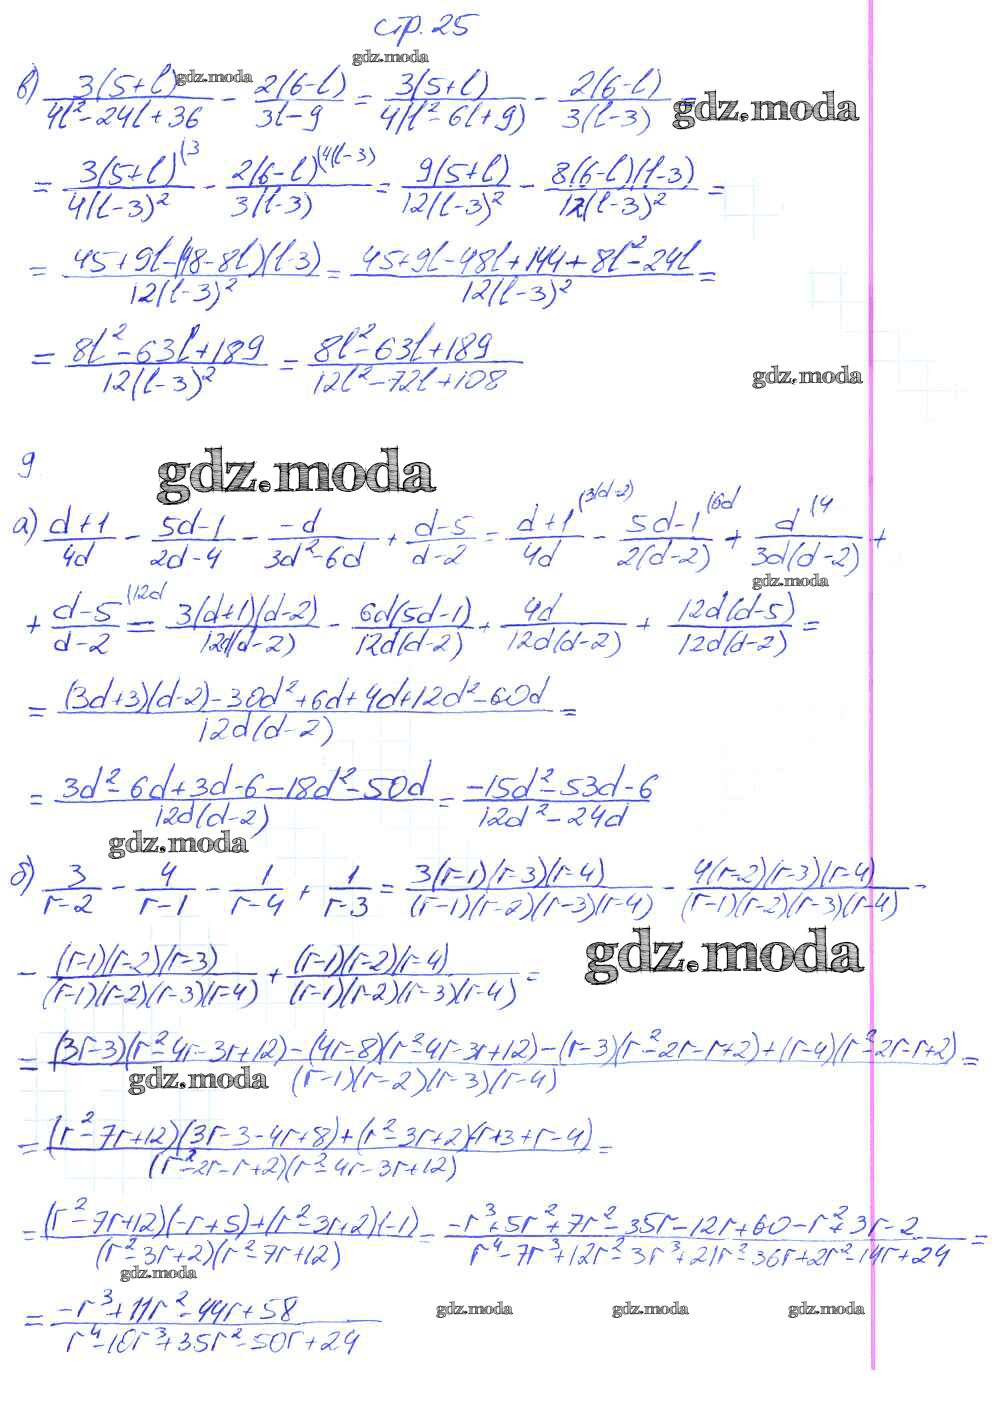 стр. 25
gdz.moda
в) 3(5+l)/(4l²-24l+36) - 2(6-l)/(3l-9) = 3(5+l)/(4(l²-6l+9)) - 2(6-l)/(3(l-3)) =
gdz.moda
gdz.moda
= 3(5+l)^(3/(4(l-3)²) - 2(6-l)^(4(l-3)/(3(l-3)) = 9(5+l)/(12(l-3)²) - 8(6-l)(l-3)/(12(l-3)²) =
= (45+9l-(48-8l)(l-3))/(12(l-3)²) = (45+9l-48l+144+8l²-24l)/(12(l-3)²) =
= (8l²-63l+189)/(12(l-3)²) = (8l²-63l+189)/(12l²-72l+108)
gdz.moda
9
gdz.moda
а) (d+1)/(4d) - (5d-1)/(2d-4) - (-d)/(3d²-6d) + (d-5)/(d-2) = (d+1)^(3(d-2)/(4d) - (5d-1)^(6d/(2(d-2)) + d^(4/(3d(d-2)) +
gdz.moda
+ (d-5)^(12d/(d-2) = 3(d+1)(d-2)/(12d(d-2)) - 6d(5d-1)/(12d(d-2)) + 4d/(12d(d-2)) + 12d(d-5)/(12d(d-2)) =
= ((3d+3)(d-2)-30d²+6d+4d+12d²-60d)/(12d(d-2)) =
= (3d²-6d+3d-6-18d²-50d)/(12d(d-2)) = (-15d²-53d-6)/(12d²-24d)
gdz.moda
б) 3/(r-2) - 4/(r-1) - 1/(r-4) + 1/(r-3) = 3(r-1)(r-3)(r-4)/((r-1)(r-2)(r-3)(r-4)) - 4(r-2)(r-3)(r-4)/((r-1)(r-2)(r-3)(r-4)) -
gdz.moda
- (r-1)(r-2)(r-3)/((r-1)(r-2)(r-3)(r-4)) + (r-1)(r-2)(r-4)/((r-1)(r-2)(r-3)(r-4)) =
= ((3r-3)(r²-4r-3r+12)-(4r-8)(r²-4r-3r+12)-(r-3)(r²-2r-r+2)+(r-4)(r²-2r-r+2))/((r-1)(r-2)(r-3)(r-4)) =
gdz.moda
= ((r²-7r+12)(3r-3-4r+8)+(r²-3r+2)(-r+3+r-4))/((r²-2r-r+2)(r²-4r-3r+12)) =
= ((r²-7r+12)(-r+5)+(r²-3r+2)(-1))/((r²-3r+2)(r²-7r+12)) = (-r³+5r²+7r²-35r-12r+60-r²+3r-2)/(r⁴-7r³+12r²-3r³+21r²-36r+2r²-14r+24) =
gdz.moda
= (-r³+11r²-44r+58)/(r⁴-10r³+35r²-50r+24)
gdz.moda gdz.moda gdz.moda